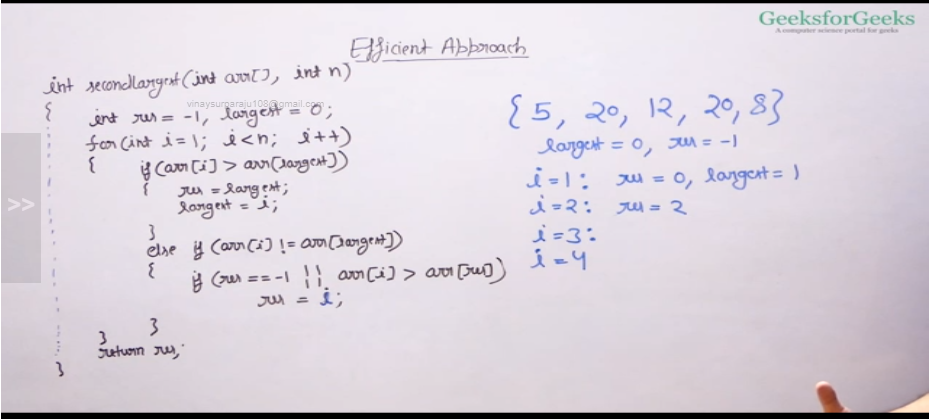 GeeksforGeeks
A computer science portal for geeks
Efficient Approach
int secondLargest(int arr[], int n)
{
vinaysurgaraju108@gmail.com
int res = -1, largest = 0;
for(int i=1; i<n; i++)
{ if(arr[i] > arr[largest])
{ res = largest;
largest = i;
}
else if (arr[i] != arr[largest])
{ if (res == -1 || arr[i] > arr[res])
res = i;
}
}
return res;
}
{5, 20, 12, 20, 8}
largest = 0, res = -1
i=1: res = 0, largest = 1
i=2: res = 2
i=3:
i=4
>>